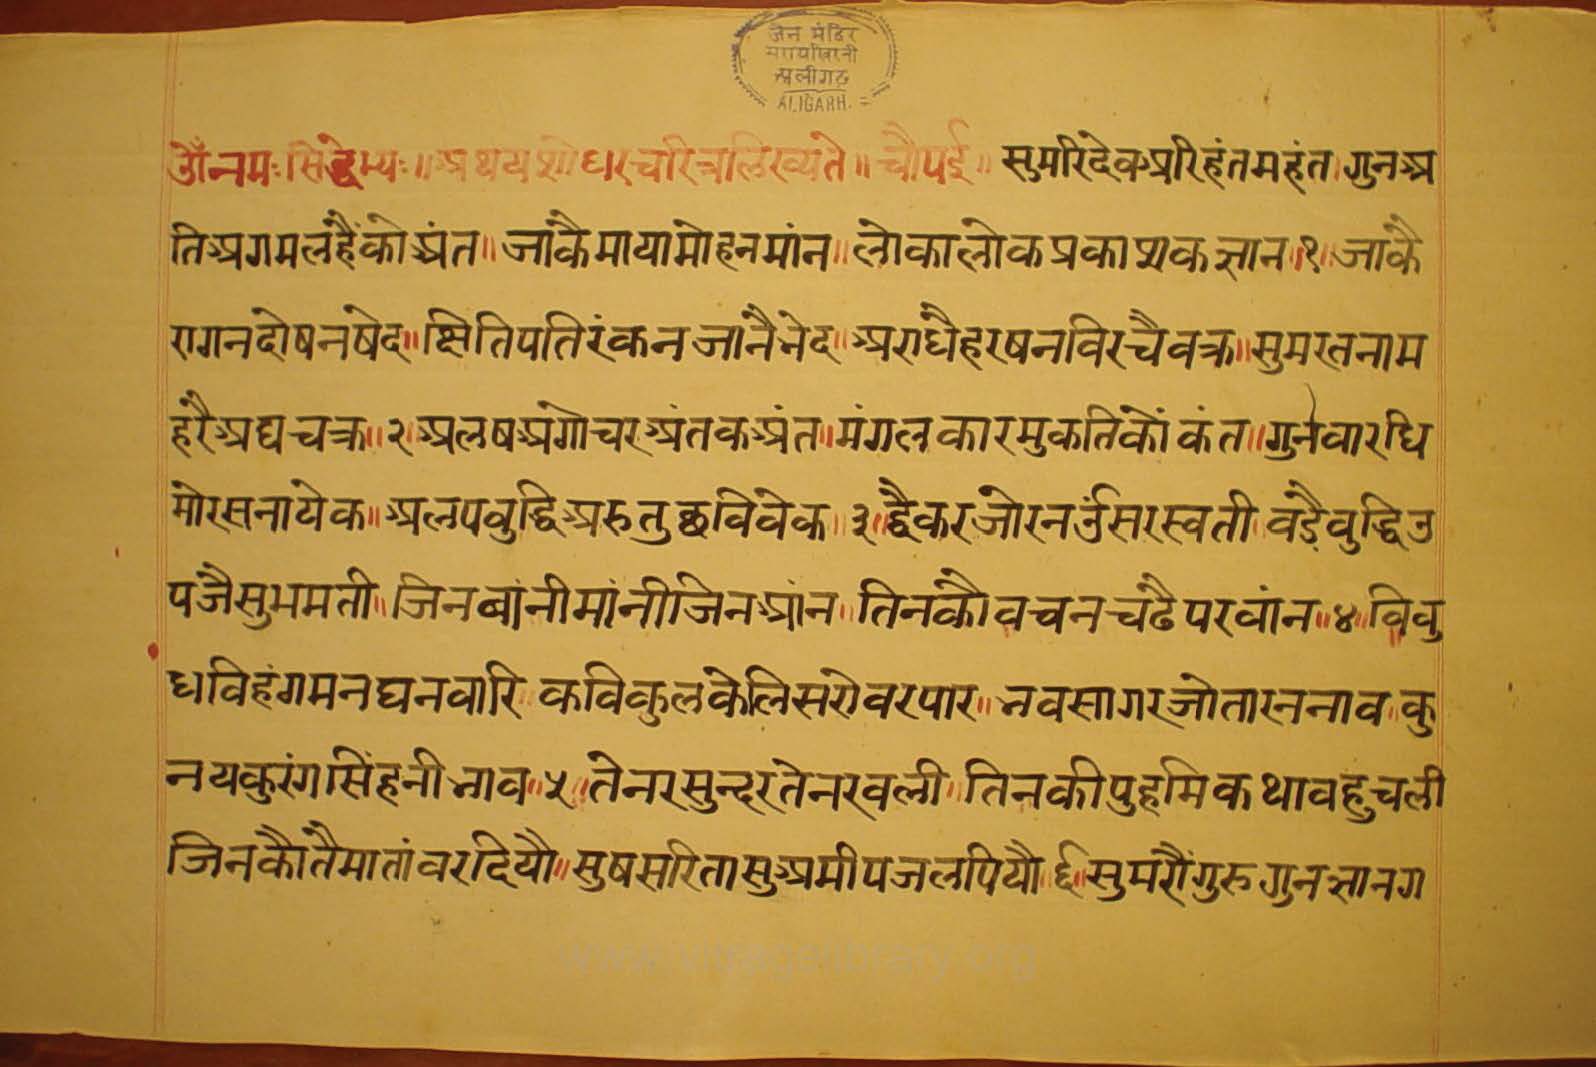 जैन मंदिर
अलीगढ़
ALIGARH.
ओँनमःसिद्धेभ्यः॥अथयशोधरचरित्रलिख्यते॥चौपई॥ सुमरिदेवअरिहंतमहंत।गुनअ
तिअगमलहैंकोअंत॥जाकैमायामोहनमांन॥लोकालोकप्रकाशकज्ञान॥१॥जाकै
रागनदोषनषेद॥क्षितिपतिरंकनजानैभेद॥अराधैहरषनविरचैवक्र॥सुमरतनाम
हरैअघचक्र॥२॥अलषअगोचरअंतकअंत॥मंगलकारमुकतिकौंकंत॥गुनवारधि
मोरसनायेक॥अलपवुद्धिअरुतुछविवेक॥३॥द्वैकरजोरनउंसरस्वती॥वडैवुद्धिउ
पजैसुभमती॥जिनबांनीमांनीजिनआंन॥तिनकौवचनचढैपरवांन॥४॥विवु
धविहंगमनघनवारि॥कविकुलकेलिसरोवरपार॥भवसागरजोतारननाव॥कु
नयकुरंगसिंहनीभाव॥५॥तेनरसुन्दरतेनरवली॥तिनकीपुहमिकथावहुचली
जिनकौतैमातांवरदियौ॥सुषसरितासुअमीपजलपियौ॥६॥सुमरौंगुरुगुनज्ञानग
www.vitragelibrary.org